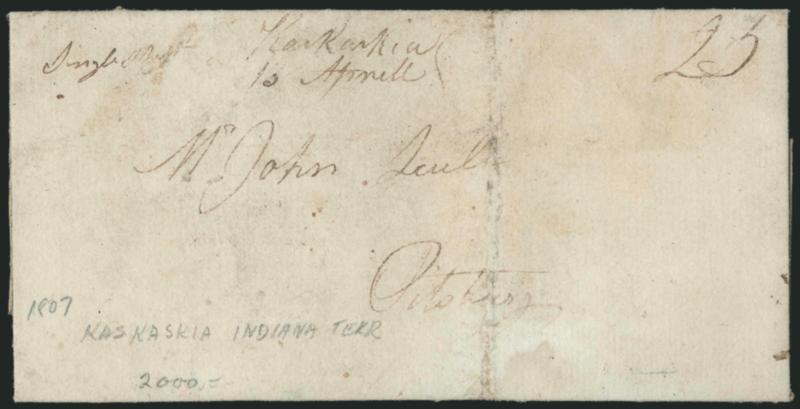 Single
Kaskaskia
10 Aprill
25
Mr John
Pitsburg
1807
KASKASKIA INDIANA TERR
2000.=